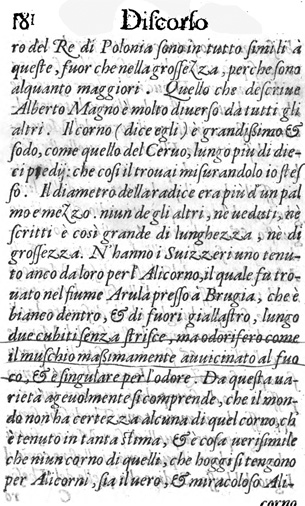 181 Discorso
ro del Re di Polonia sono in tutto simili à
queste, fuor che nella grossezza, perche sono
alquanto maggiori. Quello che descriue
Alberto Magno è molto diuerso da tutti gli
altri. Il corno (dice egli) è grandissimo &
sodo, come quello del Ceruo, lungo piu di die-
ci piedi: che così il trouai misurandolo io stes-
so. Il diametro della radice era piu d'un pal
mo e mezzo. niun de gli altri, nè ueduti, nè
scritti è così grande di lunghezza, nè di
grossezza. N'hanno i Suizzeri uno tenu-
to anco da loro per l'Alicorno, il quale fu tro-
uato nel fiume Arula presso à Brugia, che è
bianco dentro, & di fuori giallastro, lungo
due cubiti senza strisce, ma odorifero come
il muschio massimamente auuicinato al fuo
co, & è singulare per l'odore. Da questa ua-
rietà ageuolmente si comprende, che il mon-
do non ha certezza alcuna di quel corno, ch'
è tenuto in tanta stima, & è cosa uerisimile
che niun corno di quelli, che hoggi si tengono
per Alicorni, sia il uero, & miracoloso Ali-
corno